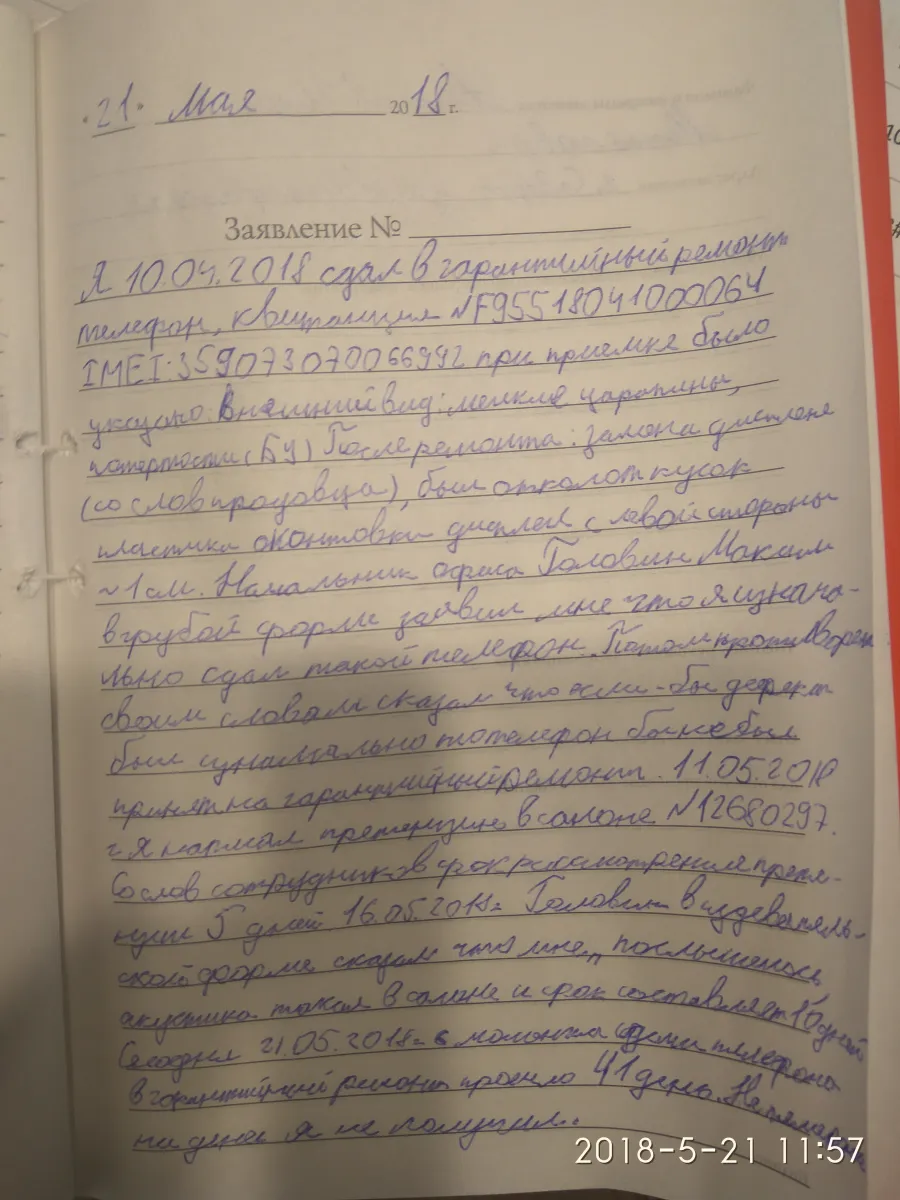 "21" Мая 2018 г.
Заявление №
Я 10.04.2018 сдал в гарантийный ремонт
телефон, квитанция №F95518041000064
IMEI:359073070066992 при приемке было
указано: внешний вид: мелкие царапины,
потертости (БУ) После ремонта: замена дисплея
(со слов продавца), был отколот кусок
пластика окантовки дисплея с левой стороны
~1см. Начальник офиса Головин Максим
в грубой форме заявил мне что я изнача-
льно сдал такой телефон. Потом противореча
своим словам сказал что если-бы дефект
был изначально то телефон бы не был
принят на гарантийный ремонт. 11.05.2018
г. я написал претензию в салоне №12680297.
Со слов сотрудников срок рассмотрения прете-
нзии 5 дней 16.05.2018г. Головин в издеватель-
ской форме сказал что мне "послышалось,
акустика такая в салоне и срок составляет 10 дней
Сегодня 21.05.2018г. с момента сдачи телефона
в гарантийный ремонт прошло 41 день. Ни телефона
ни денег я не получил.
2018-5-21 11:57